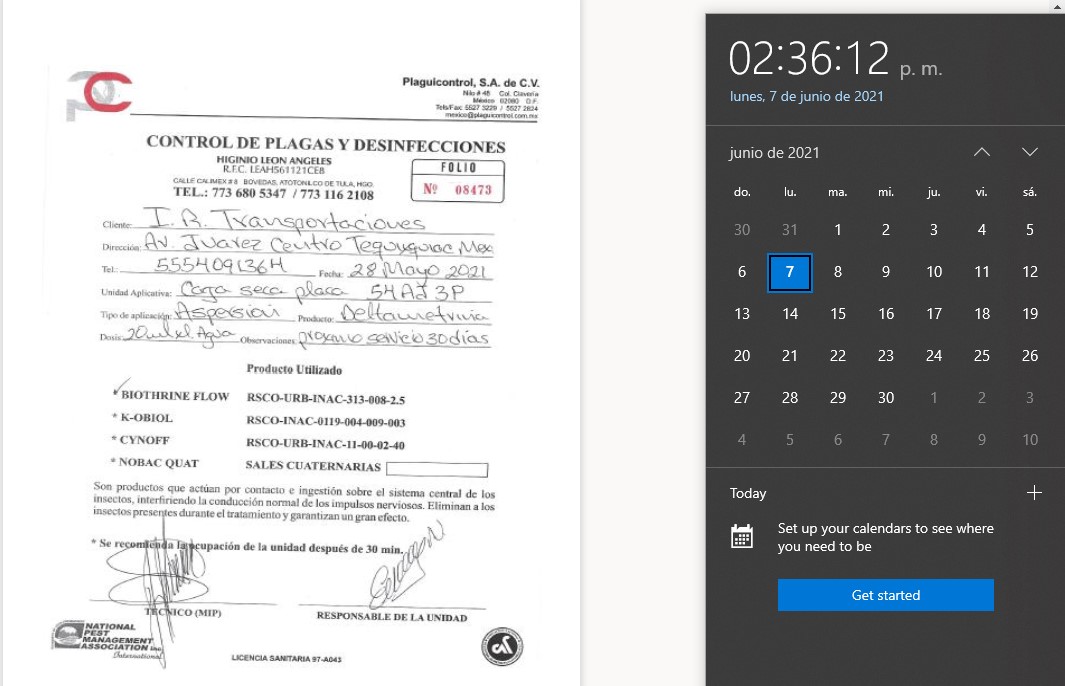 PC
Plaguicontrol, S.A. de C.V.
Nilo # 48 Col. Clavería
México 02080 D.F.
Tels/Fax: 5527 3229 / 5527 2834
mexico@plaguicontrol.com.mx
CONTROL DE PLAGAS Y DESINFECCIONES
HIGINIO LEON ANGELES
R.F.C. LEAH561121CE8
CALLE CALIMEX # 8 BOVEDAS, ATOTONILCO DE TULA, HGO.
TEL.: 773 680 5347 / 773 116 2108
FOLIO
Nº 08473
Cliente: I. R. Transportaciones
Dirección: Av. Juarez Centro Tequixquiac Mex
Tel.: 5554091364 Fecha: 28 Mayo 2021
Unidad Aplicativa: Caja seca placa 54AJ3P
Tipo de aplicación: Aspersion Producto: Deltametrina
Dosis: 20ml xl Agua Observaciones: proximo servicio 30 días
Producto Utilizado
* BIOTHRINE FLOW RSCO-URB-INAC-313-008-2.5
* K-OBIOL RSCO-INAC-0119-004-009-003
* CYNOFF RSCO-URB-INAC-11-00-02-40
* NOBAC QUAT SALES CUATERNARIAS
Son productos que actúan por contacto e ingestión sobre el sistema central de los
insectos, interfiriendo la conducción normal de los impulsos nerviosos. Eliminan a los
insectos presentes durante el tratamiento y garantizan un gran efecto.
* Se recomienda la ocupación de la unidad después de 30 min.
TÉCNICO (MIP)
RESPONSABLE DE LA UNIDAD
NATIONAL
PEST
MANAGEMENT
ASSOCIATION Inc.
International
LICENCIA SANITARIA 97-A043
02:36:12 p. m.
lunes, 7 de junio de 2021
junio de 2021
do. lu. ma. mi. ju. vi. sá.
30 31 1 2 3 4 5
6 7 8 9 10 11 12
13 14 15 16 17 18 19
20 21 22 23 24 25 26
27 28 29 30 1 2 3
4 5 6 7 8 9 10
Today
Set up your calendars to see where
you need to be
Get started